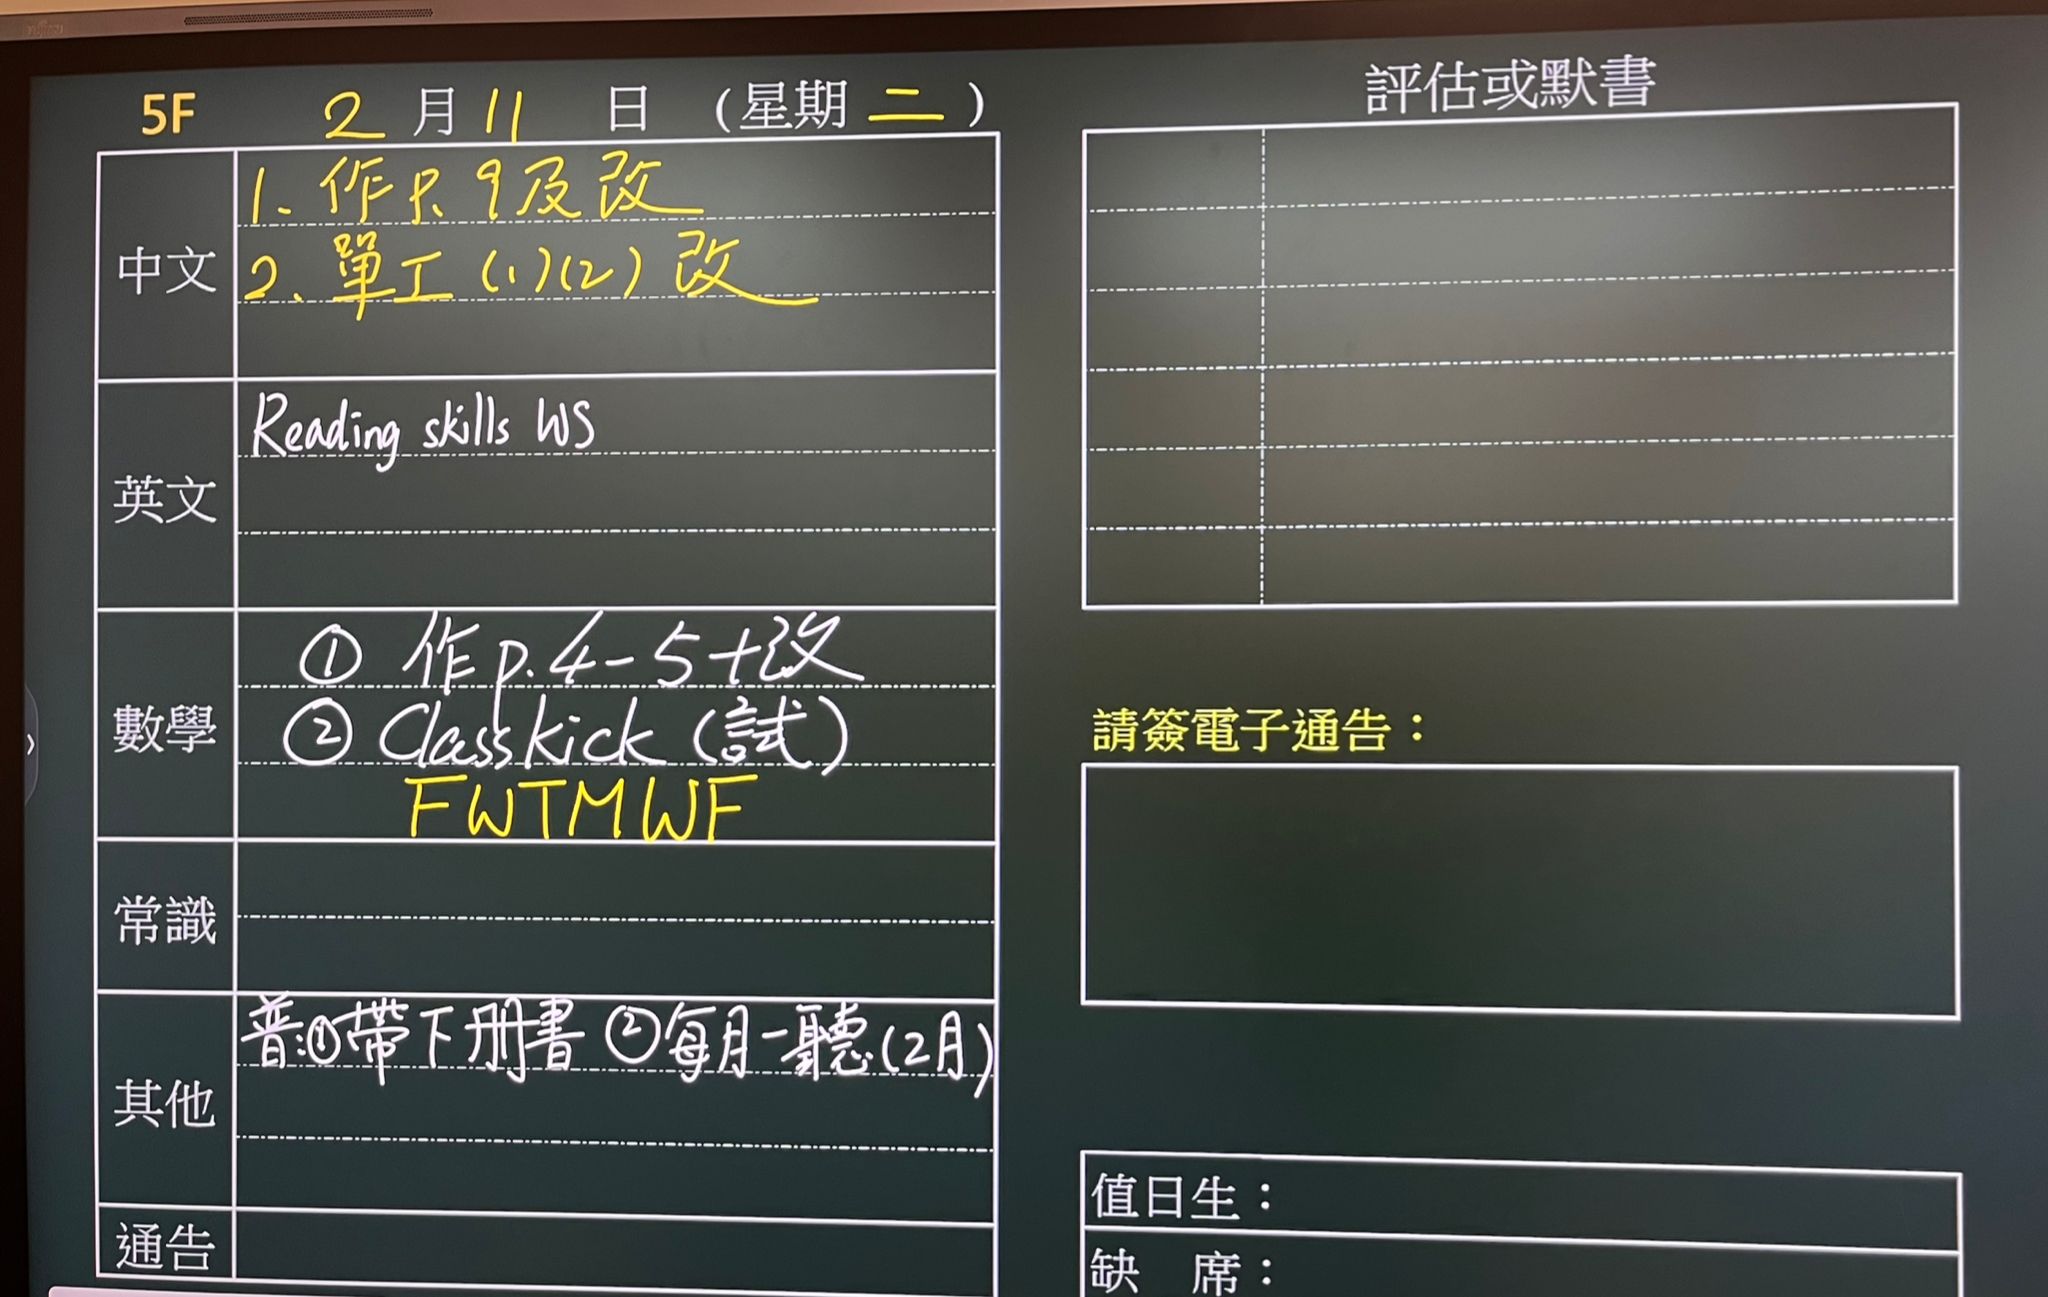 5F 2月11日 (星期二)
中文
1. 作 P. 9及改
2. 單工 (1)(2) 改
英文
Reading skills WS
數學
① 作 p. 4-5+改
② Classkick (試)
FWTMWF
常識
其他
普:①帶下册書 ②每月一聽(2月)
通告
評估或默書
請簽電子通告：
值日生：
缺 席：